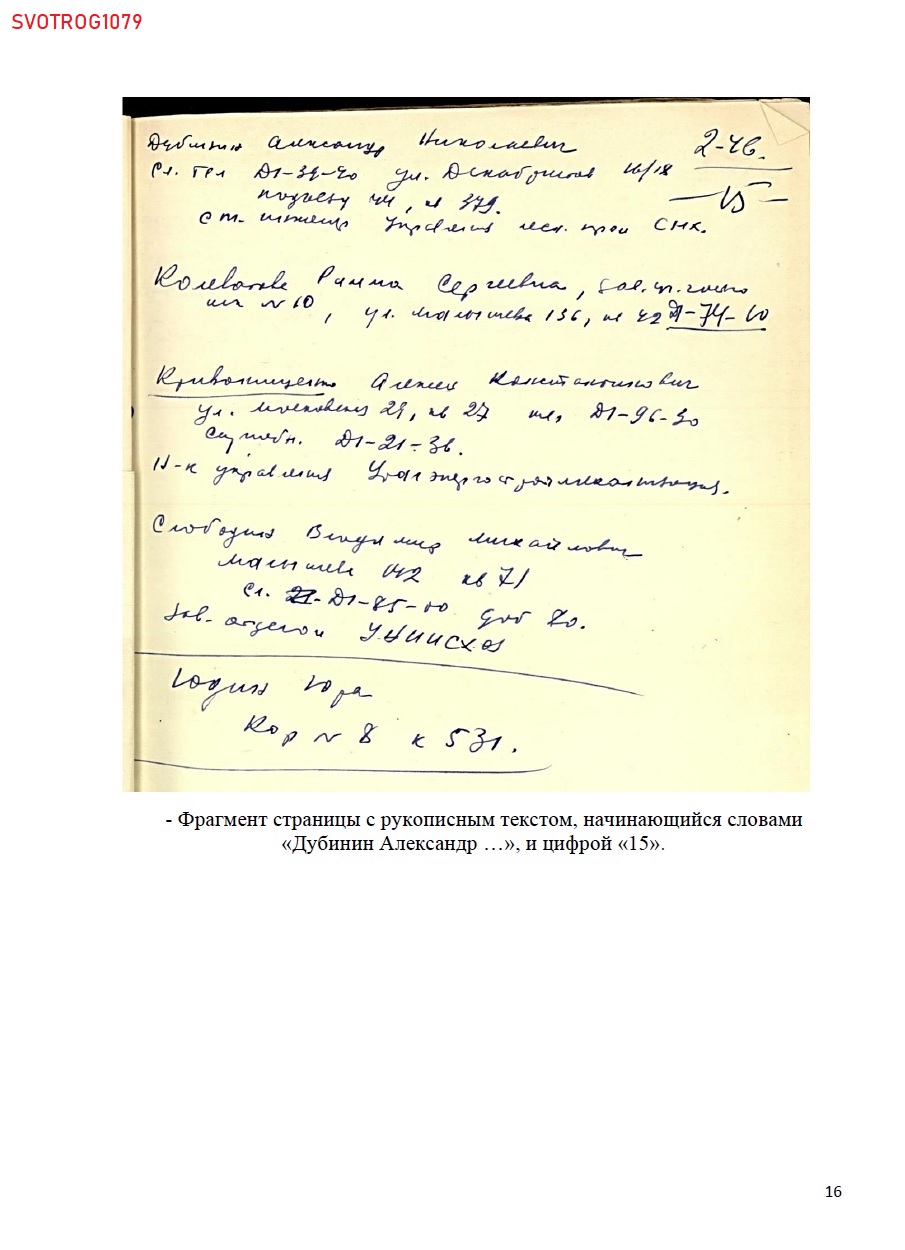 SVOTROG1079
Дубинин Александр Николаевич
2-46.
Сл. тел Д1-39-40 ул. Декабристов 16/18
15
подъезд 44, кв 379.
Ст. инженер управления мест. пром СНХ.
Колеватова Римма Сергеевна,
№ 10, ул. Малышева 136, кв 42 Д1-74-10
Кривонищенко Алексей Константинович
ул. Московская 29, кв 27 тел, Д1-96-30
служебн. Д1-21-36.
Н-к управления Уралэнергостроймеханизация.
Слободин Владимир Михайлович
Малышева кв 71
Сл. Д1-85-00 доб 20.
Зав. отделом УНИИСХОЗ
Юдин Юра
Кор № 8 к 531.
- Фрагмент страницы с рукописным текстом, начинающийся словами
«Дубинин Александр …», и цифрой «15».
16